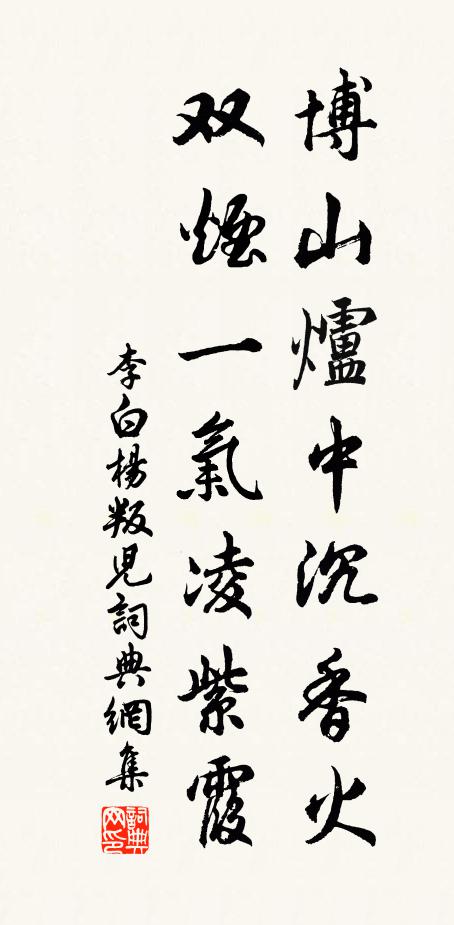 博山爐中沉香火
双煙一氣凌紫霞
李白楊叛児詞典網集
詞典網印